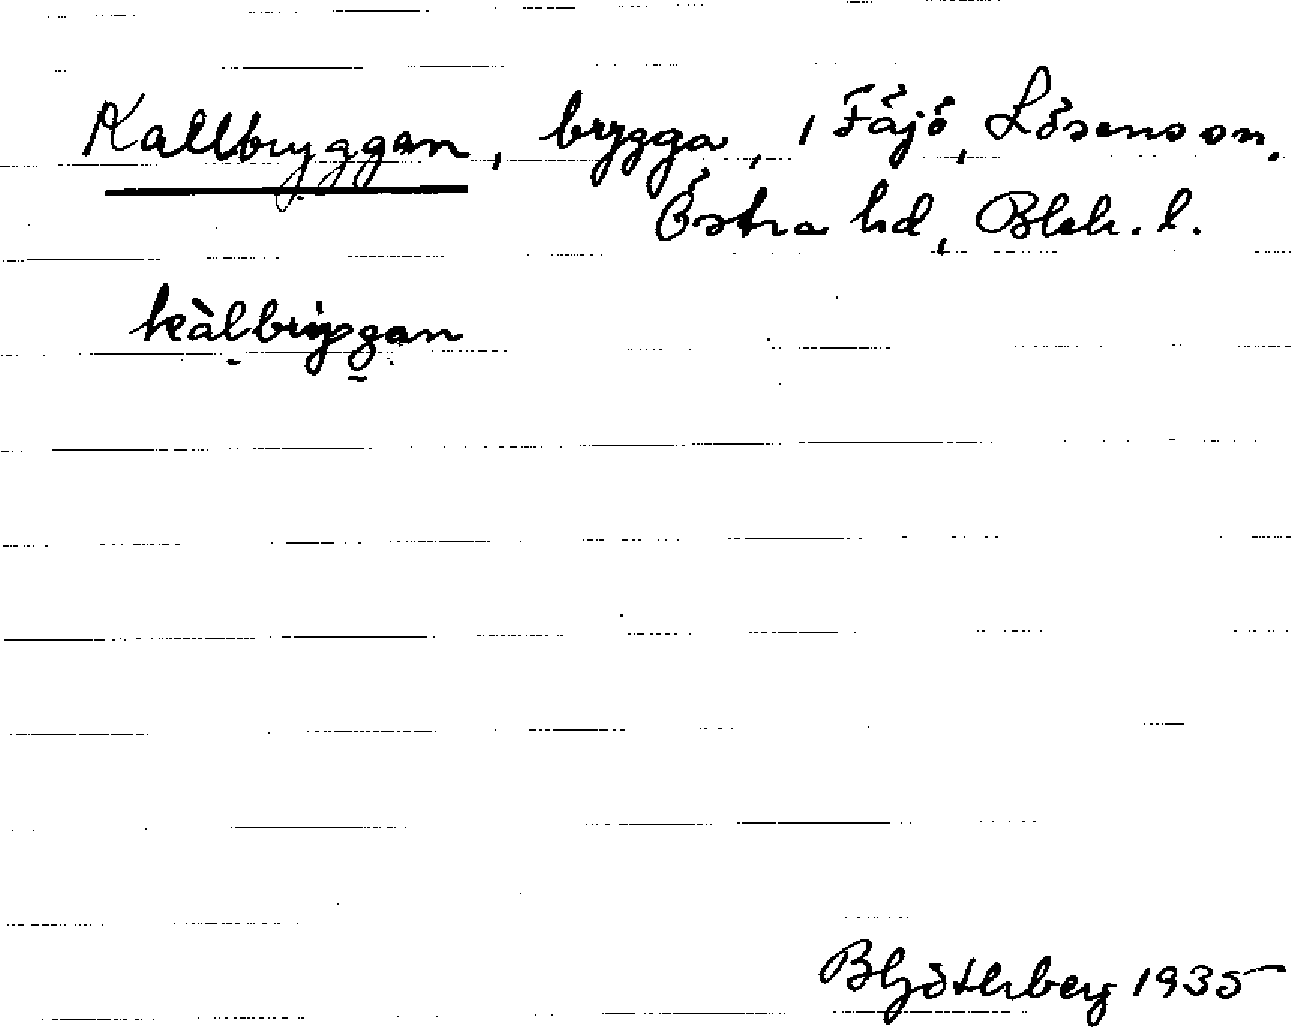 Kallbryggan, brygga, i Fäjö, Lösens sn.
Östra hd, Blek. l.
kàlbrýggan
1935